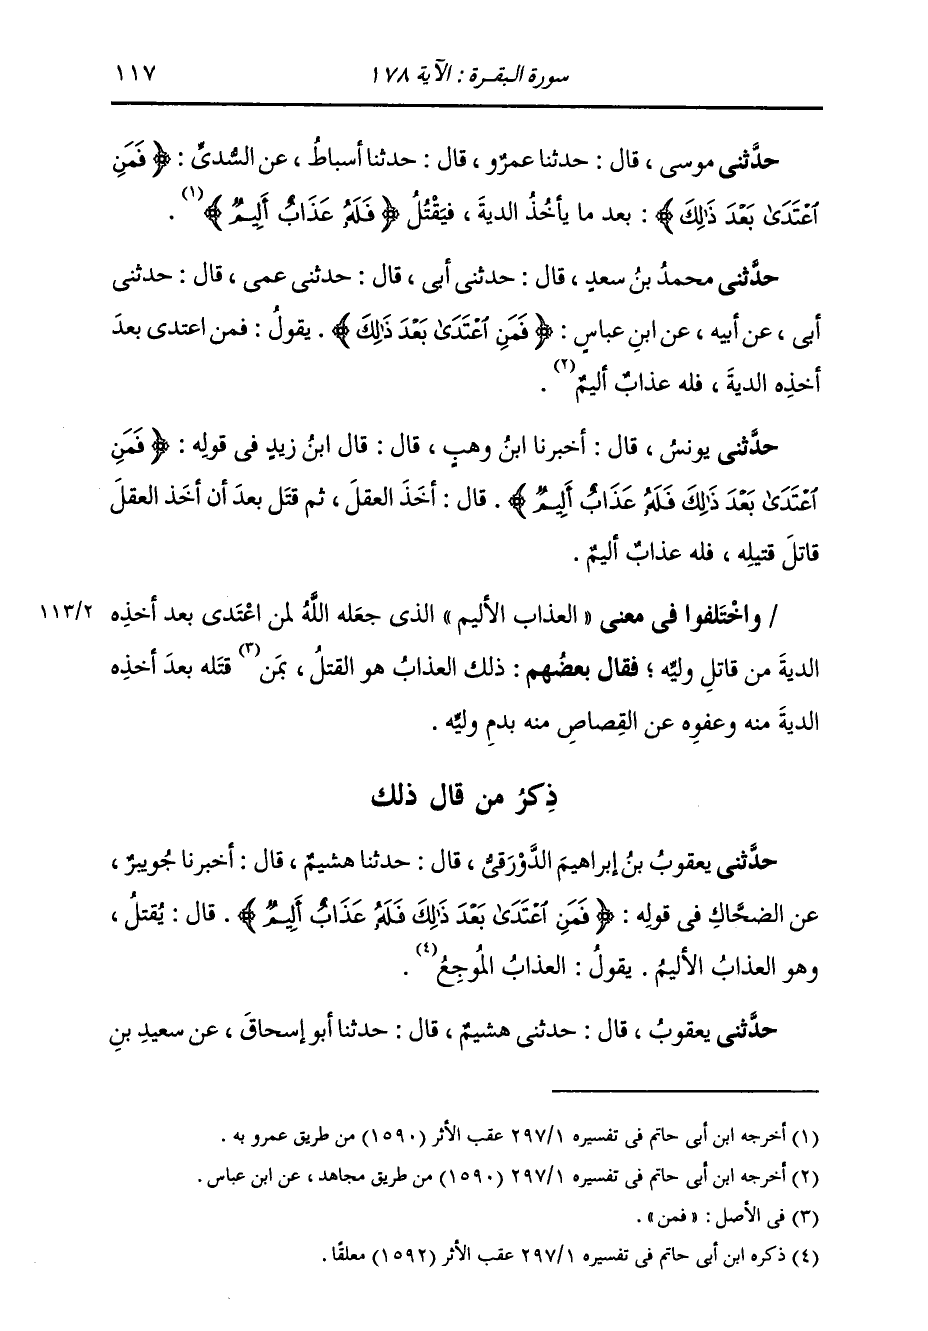 سورة البقرة : الآية ١٧٨ ١١٧
حدَّثنى موسى ، قال : حدثنا عمرٌو ، قال : حدثنا أسباطُ ، عن السُّدىِّ : ﴿ فَمَنِ
ٱعْتَدَىٰ بَعْدَ ذَٰلِكَ ﴾ : بعد ما يأخُذُ الديةَ ، فيَقْتُلُ ﴿ فَلَهُۥ عَذَابٌ أَلِيمٌ ﴾(١) .
حدَّثنى محمدُ بنُ سعدٍ ، قال : حدثنى أبى ، قال : حدثنى عمى ، قال : حدثنى
أبى ، عن أبيه ، عن ابنِ عباسٍ : ﴿ فَمَنِ ٱعْتَدَىٰ بَعْدَ ذَٰلِكَ ﴾ . يقولُ : فمن اعتدى بعدَ
أخذِه الديةَ ، فله عذابٌ أليمٌ(٢) .
حدَّثنى يونسُ ، قال : أخبرنا ابنُ وهبٍ ، قال : قال ابنُ زيدٍ فى قولِه : ﴿ فَمَنِ
ٱعْتَدَىٰ بَعْدَ ذَٰلِكَ فَلَهُۥ عَذَابٌ أَلِيمٌ ﴾ . قال : أخَذَ العقلَ ، ثم قتَل بعدَ أن أخَذ العقلَ
قاتلَ قتيلِه ، فله عذابٌ أليمٌ .
/ واخْتَلفوا فى معنى « العذاب الأليم » الذى جعَله اللَّهُ لمن اعْتَدى بعد أخذِه ١١٣/٢
الديةَ من قاتلِ وليِّه ؛ فقال بعضُهم : ذلك العذابُ هو القتلُ ، بمَن(٣) قتَله بعدَ أخذِه
الديةَ منه وعفوِه عن القِصاصِ منه بدمِ وليِّه .
ذِكرُ من قال ذلك
حدَّثنى يعقوبُ بنُ إبراهيمَ الدَّوْرَقىُّ ، قال : حدثنا هشيمٌ ، قال : أخبرنا جُويبرٌ ،
عن الضحَّاكِ فى قولِه : ﴿ فَمَنِ ٱعْتَدَىٰ بَعْدَ ذَٰلِكَ فَلَهُۥ عَذَابٌ أَلِيمٌ ﴾ . قال : يُقتلُ ،
وهو العذابُ الأليمُ . يقولُ : العذابُ المُوجِعُ(٤) .
حدَّثنى يعقوبُ ، قال : حدثنى هشيمٌ ، قال : حدثنا أبو إسحاقَ ، عن سعيدِ بنِ
(١) أخرجه ابن أبى حاتم فى تفسيره ٢٩٧/١ عقب الأثر (١٥٩٠) من طريق عمرو به .
(٢) أخرجه ابن أبى حاتم فى تفسيره ٢٩٧/١ (١٥٩٠) من طريق مجاهد ، عن ابن عباس .
(٣) فى الأصل : « فمن » .
(٤) ذكره ابن أبى حاتم فى تفسيره ٢٩٧/١ عقب الأثر (١٥٩٢) معلقًا .